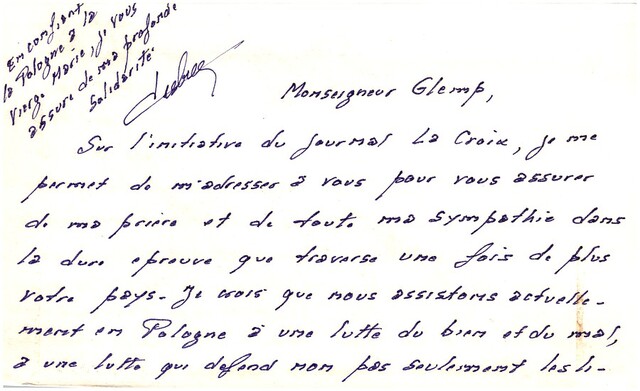 En confiant
la Pologne à la
Vierge Marie, je vous
assure de ma profonde
solidarité.
Monseigneur Glemp,
Sur l'initiative du journal La Croix, je me
permet de m'adresser à vous pour vous assurer
de ma prière et de toute ma sympathie dans
la dure epreuve que traverse une fois de plus
votre pays. Je crois que nous assistons actuelle-
ment en Pologne à une lutte du bien et du mal,
à une lutte qui defend non pas seulement les li-